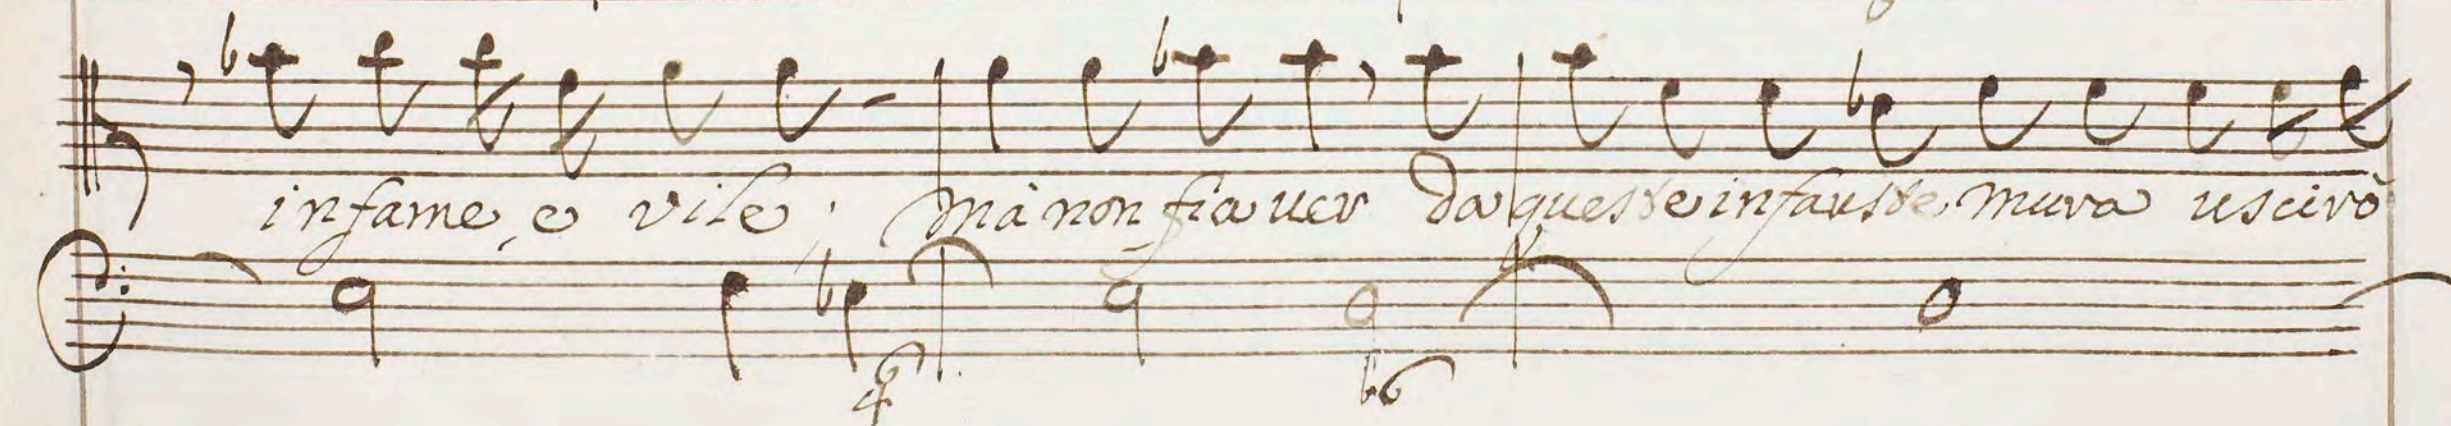 infame, e vile; mà non fia ver da queste infauste mura uscirò
6
4
b6